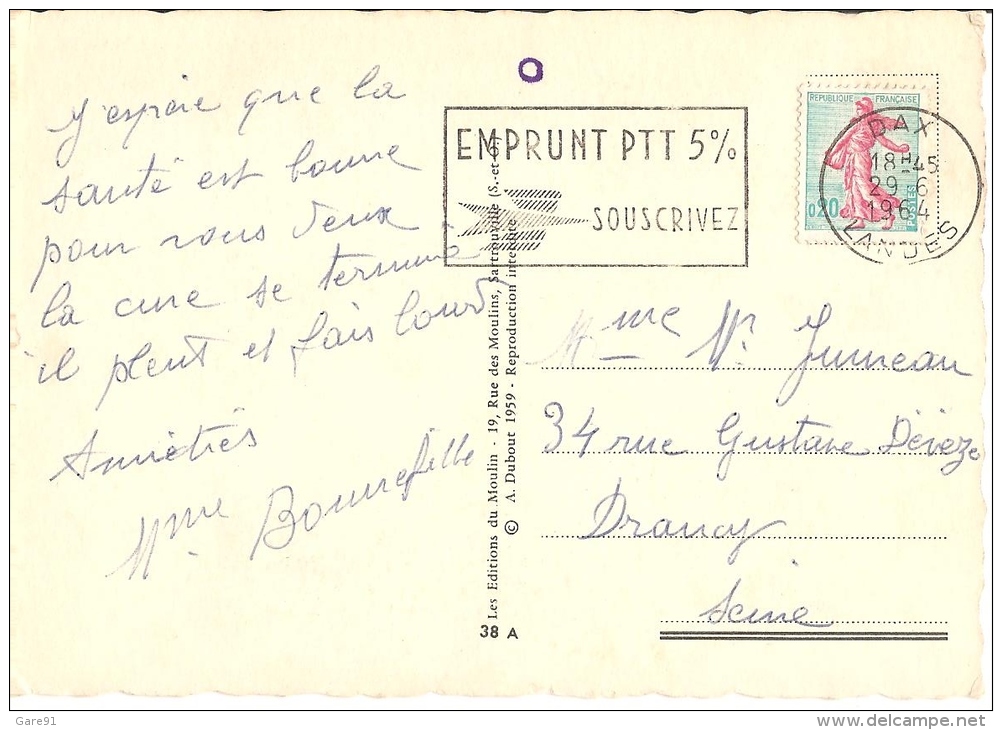 J'espère que la
santé est bonne
pour vous deux
la cure se termine
il pleut et fais lourd
Amitiés
Mme Bonnefille
EMPRUNT PTT 5%
SOUSCRIVEZ
REPUBLIQUE FRANÇAISE
0,20
POSTES
DAX
18H45
29 6
1964
LANDES
Les Editions du Moulin - 19, Rue des Moulins, Sartrouville (S.-et-O.)
© A. Dubout 1959 - Reproduction interdite
38 A
Mme Mr Jumeau
34 rue Gustave Dévèze
Drancy
Seine
Gare91
delcampe.net